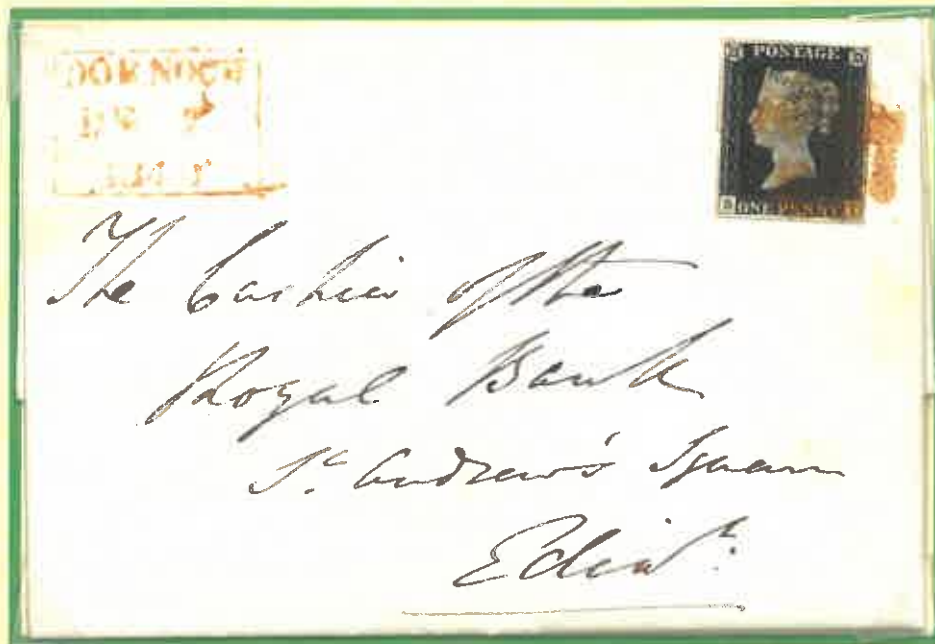 DORNOCH
POSTAGE
ONE PENNY
The Cashier of the
Royal Bank
St. Andrew's Square
Edinr.